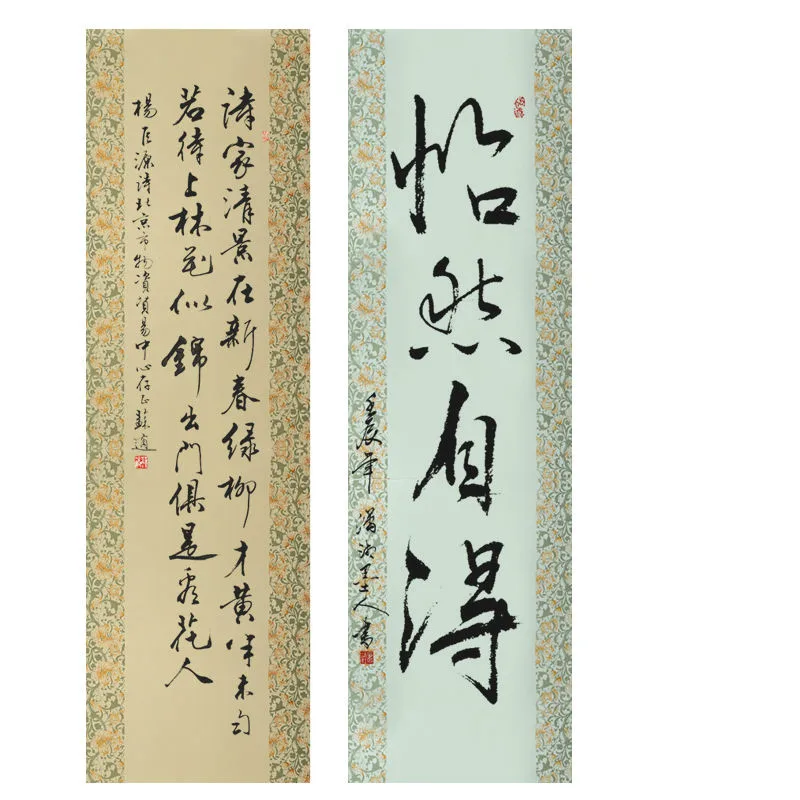 詩家清景在新春綠柳才黃半未勻
若待上林花似錦出門俱是看花人
楊巨源詩北京市物資貿易中心存正蘇適
怡然自得
壬辰年瀟湘墨人書